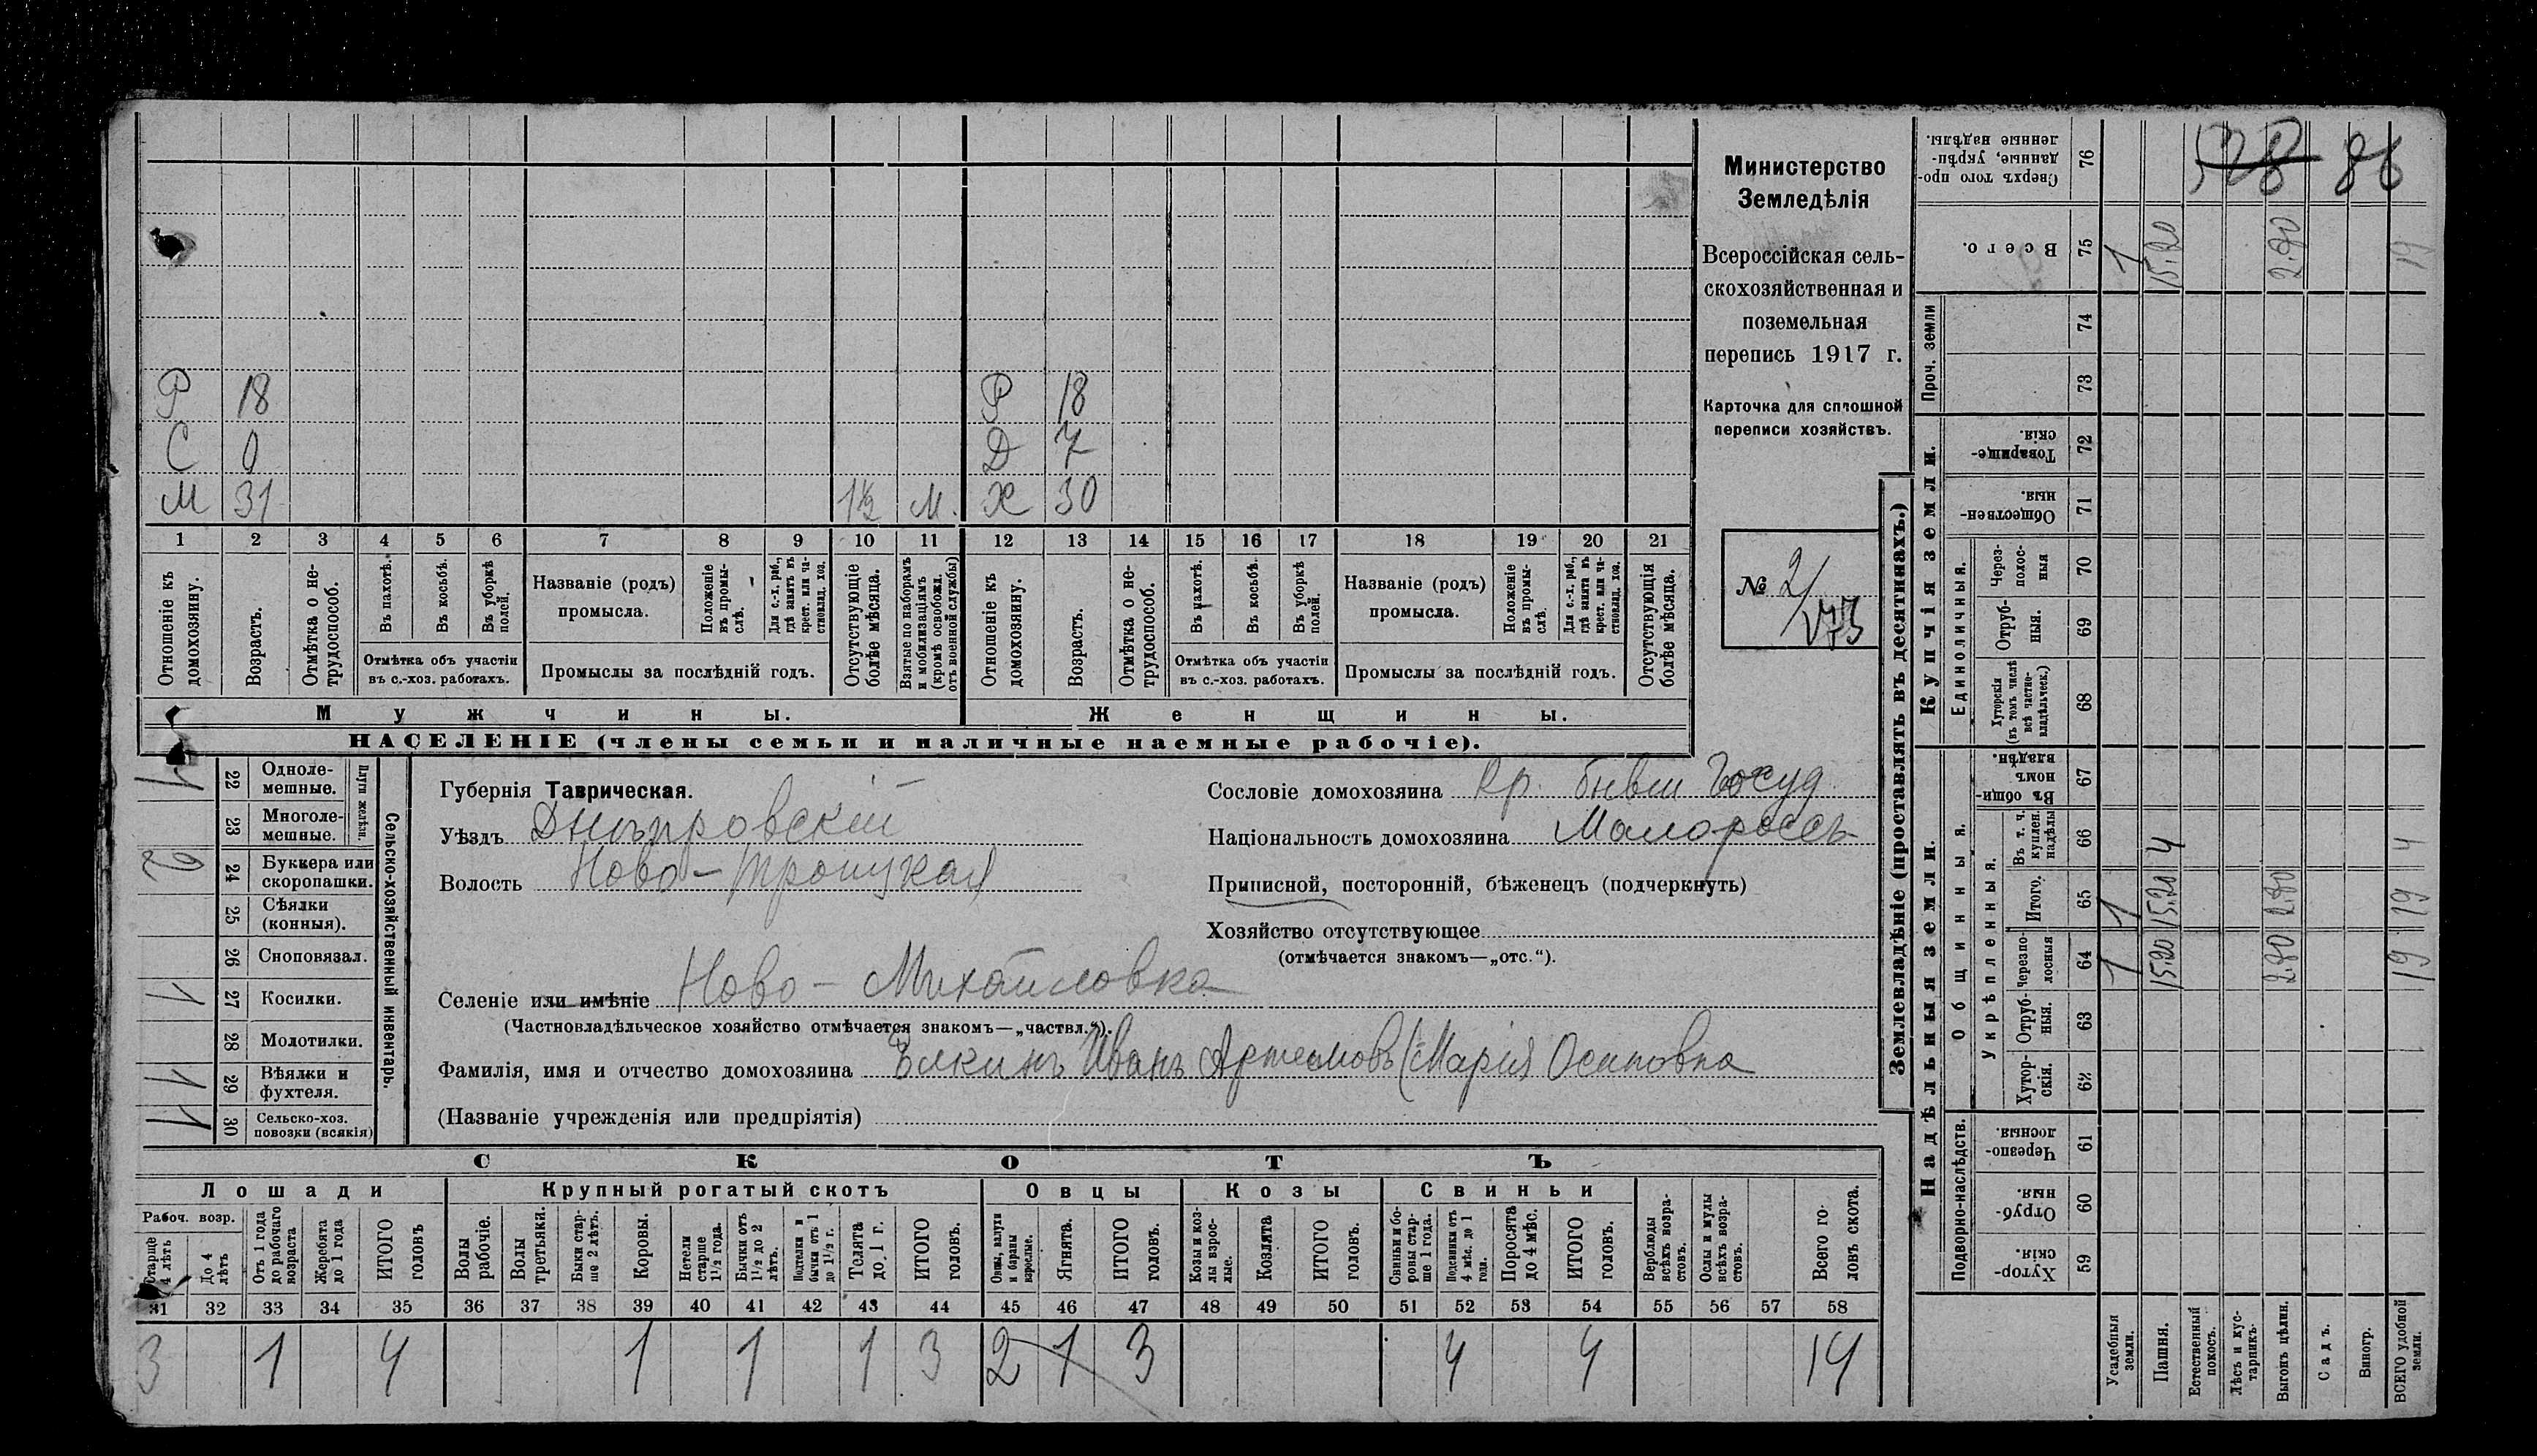 Р 18 Р 18
С 0 Д 7
М 31 1½ М. Х 30
1 2 3 4 5 6 7 8 9 10 11 12 13 14 15 16 17 18 19 20 21
Отношеніе къ домохозяину.
Возрастъ.
Отмѣтка о не-
трудоспособ.
Въ пахотѣ.
Въ косьбѣ.
Въ уборкѣ
полей.
Отмѣтка объ участіи
въ с.-хоз. работахъ.
Названіе (родъ)
промысла.
Положеніе
въ промы-
слѣ.
Для с.-х. раб.,
гдѣ занятъ въ
крест. или ча-
стновлад. хоз.
Промыслы за послѣдній годъ.
Отсутствующіе
болѣе мѣсяца.
Взятые по наборамъ
и мобилизаціямъ
(кромѣ освобожд.
отъ военной службы)
Отношеніе къ
домохозяину.
Возрастъ.
Отмѣтка о не-
трудоспособ.
Въ пахотѣ.
Въ косьбѣ.
Въ уборкѣ
полей.
Отмѣтка объ участіи
въ с.-хоз. работахъ.
Названіе (родъ)
промысла.
Положеніе
въ промы-
слѣ.
Для с.-х. раб.,
гдѣ занята въ
крест. или ча-
стновлад. хоз.
Промыслы за послѣдній годъ.
Отсутствующія
болѣе мѣсяца.
Мужчины. Женщины.
НАСЕЛЕНІЕ (члены семьи и наличные наемные рабочіе).
Министерство
Земледѣлія
Всероссійская сель-
скохозяйственная и
поземельная
перепись 1917 г.
Карточка для сплошной
переписи хозяйствъ.
№ 2/
Сельско-хозяйственный инвентарь.
Плуги желѣзн.
1 22 Одноле-
мешные.
23 Многоле-
мешные.
2 24 Буккера или
скоропашки.
25 Сѣялки
(конныя).
26 Сноповязал.
1 27 Косилки.
28 Молотилки.
11 29 Вѣялки и
фухтеля.
11 30 Сельско-хоз.
повозки (всякія)
Губернія Таврическая.
Уѣздъ Днѣпровскій
Волость Ново-Троицкая
Селеніе или имѣніе Ново-Михайловка
(Частновладѣльческое хозяйство отмѣчается знакомъ—„частвл.“).
Фамилія, имя и отчество домохозяина Елкинъ Иванъ Артемовъ (Марія Осиповна
(Названіе учрежденія или предпріятія)
Сословіе домохозяина Кр. бывш Госуд
Національность домохозяина Малороссъ
Приписной, посторонній, бѣженецъ (подчеркнуть)
Хозяйство отсутствующее
(отмѣчается знакомъ—„отс.“).
СКОТЪ
Лошади Крупный рогатый скотъ Овцы Козы Свиньи
Рабоч. возр.
Старше
4 лѣтъ
До 4
лѣтъ
Отъ 1 года
до рабочаго
возраста
Жеребята
до 1 года
ИТОГО
головъ
Волы
рабочіе.
Волы
третьяки.
Быки стар-
ше 2 лѣтъ.
Коровы.
Нетели
старше
1½ года.
Бычки отъ
1½ до 2
лѣтъ.
Подтелки и
бычки отъ 1
до 1½ г.
Телята
до 1 г.
ИТОГО
головъ.
Овцы, валухи
и бараны
взрослые.
Ягнята.
ИТОГО
головъ.
Козы и коз-
лы взрос-
лые.
Козлята
ИТОГО
головъ.
Свиньи и бо-
ровы стар-
ше 1 года.
Подсвинки отъ
4 мѣс. до 1
года.
Поросята
до 4 мѣс.
ИТОГО
головъ.
Верблюды
всѣхъ возра-
стовъ.
Ослы и мулы
всѣхъ возра-
стовъ.
Всего го-
ловъ скота.
31 32 33 34 35 36 37 38 39 40 41 42 43 44 45 46 47 48 49 50 51 52 53 54 55 56 57 58
3 1 4 1 1 1 3 2 1 3 4 4 14
Землевладѣніе (проставлять въ десятинахъ.)
Надѣльныя земли. Купчія земли.
Подворно-наслѣдств.
Общинныя.
Укрѣпленныя.
Единоличныя.
Проч. земли
Сверхъ того про-
данные, укрѣп-
ленные надѣлы. 76 528 86
Всего. 75 1 15.20 2.80 19
74
73
Товарище-
скія. 72
Обществен-
ныя. 71
Через-
полос-
ныя 70
Отруб-
ныя. 69
Хуторскія
(въ томъ числѣ
всѣ частно-
владѣльческ.) 68
Въ общин-
номъ
владѣн. 67
Въ т. ч.
куплен.
надѣлы 66 4 4
Итого. 65 1 15.20 2.80 19
Черезпо-
лосныя 64 1 15.20 2.80 19
Отруб-
ныя. 63
Хутор-
скія. 62
Черезпо-
лосныя. 61
Отруб-
ныя. 60
Хутор-
скія. 59
Усадебныя
земли.
Пашня.
Естественный
покосъ.
Лѣсъ и кус-
тарникъ.
Выгонъ цѣлин.
Садъ.
Виногр.
ВСЕГО удобной
земли.